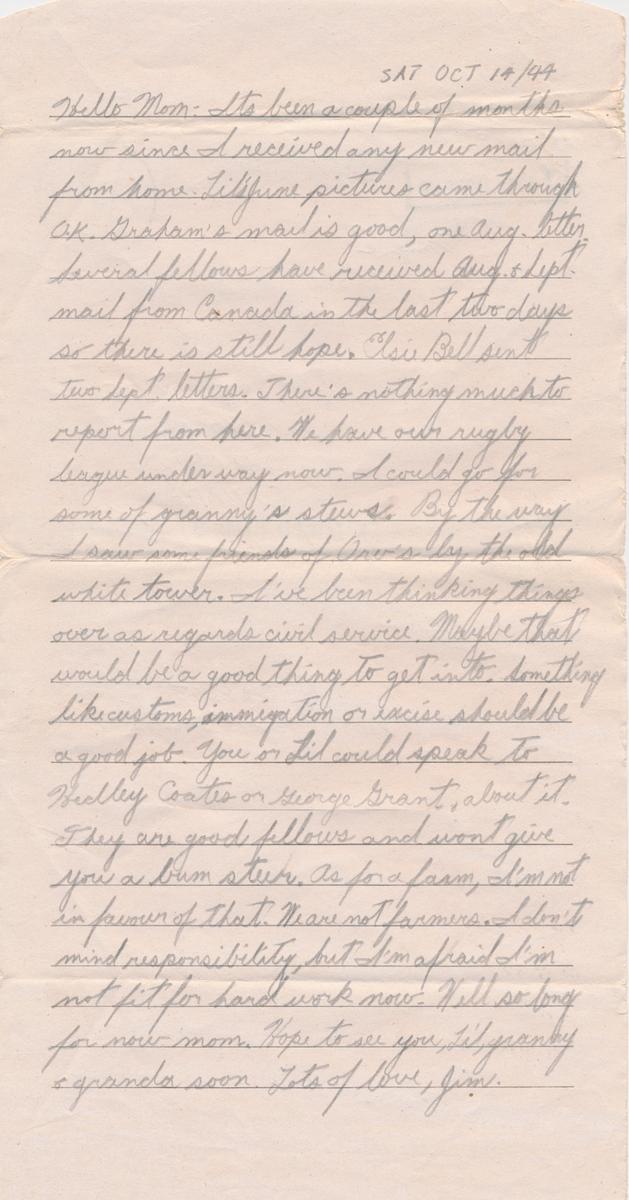 SAT OCT 14/44
Hello Mom:- Its been a couple of months
now since I received any new mail
from home. Lil's June pictures came through
O.K. Graham's mail is good, one Aug. letter.
Several fellows have received Aug. & Sept.
mail from Canada in the last two days
so there is still hope. Elsie Bell sent
two Sept. letters. There's nothing much to
report from here. We have our rugby
league under way now. I could go for
some of granny's stews. By the way
I saw some friends of Orv's by the old
white tower. I've been thinking things
over as regards civil service. Maybe that
would be a good thing to get into. Something
like customs, immigation or excise should be
a good job. You or Lil could speak to
Hedley Coates or George Grant, about it.
They are good fellows and wont give
you a bum steer. As for a farm, I'm not
in favour of that. We are not farmers. I don't
mind responsibility, but I'm afraid I'm
not fit for hard work now. Well so long
for now mom. Hope to see you, Lil, granny
& granda soon. Lots of love, Jim.